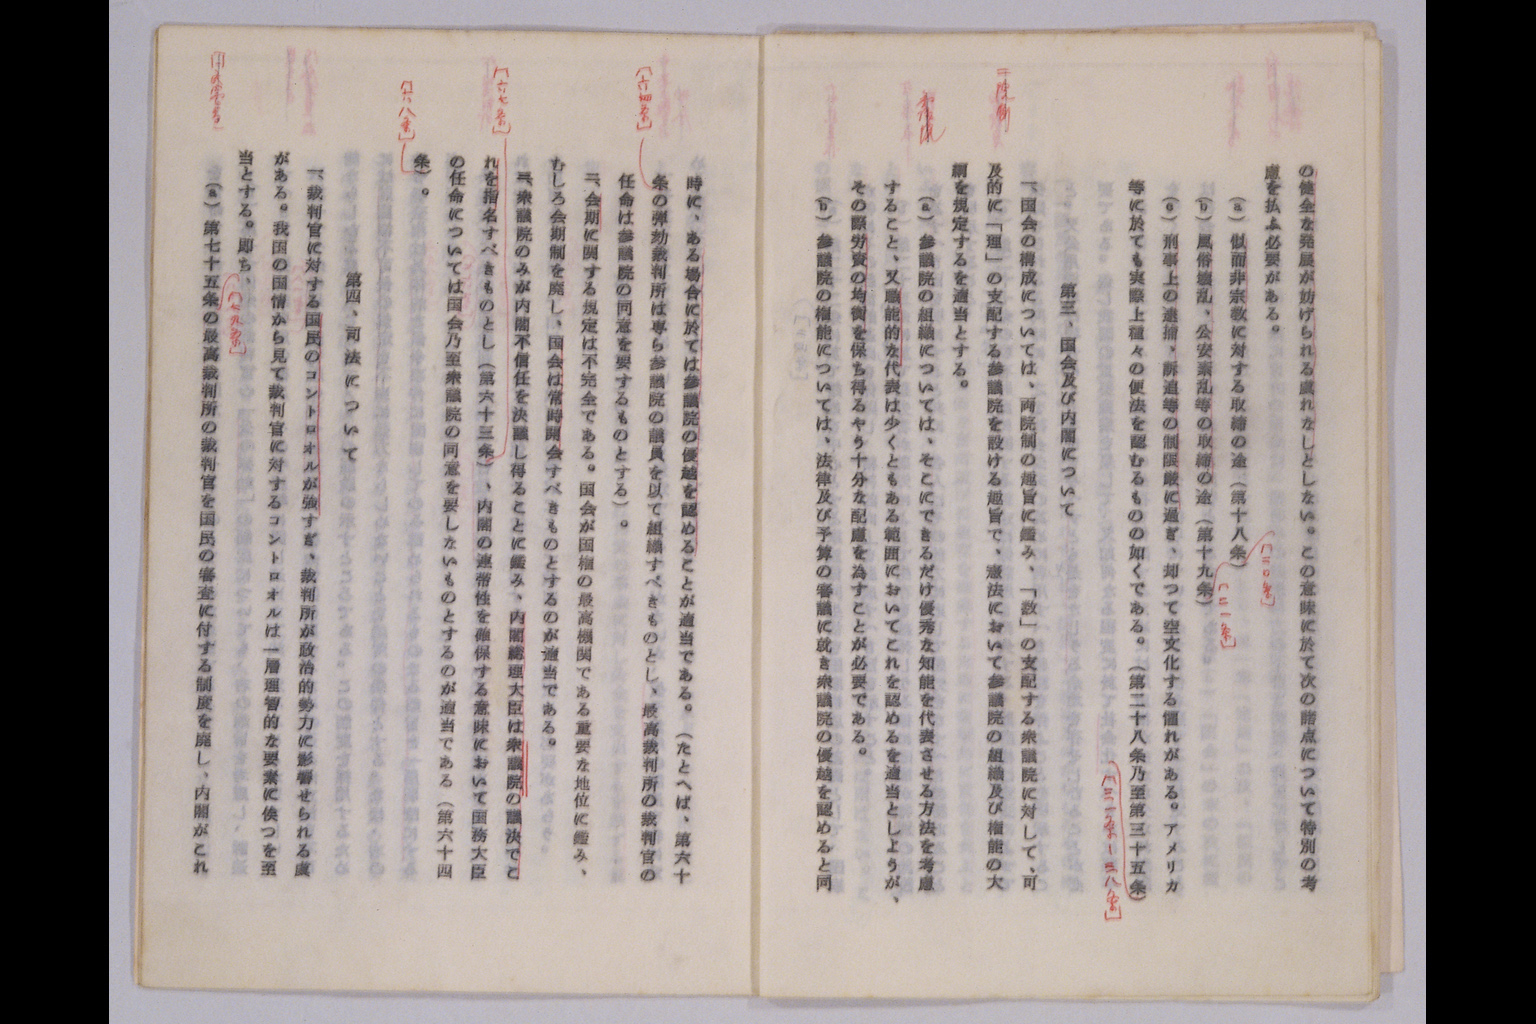 の健全な発展が妨げられる虞れなしとしない。この意味に於て次の諸点について特別の考
慮を払ふ必要がある。
(a) 似而非宗教に対する取締の途(第十八条)
[二〇条]
(b) 風俗壊乱、公安紊乱等の取締の途(第十九条)
[二一条]
(c) 刑事上の逮捕、訴追等の制限厳に過ぎ、却つて空文化する懼れがある。アメリカ
等に於ても実際上種々の便法を認むるものの如くである。(第二十八条乃至第三十五条)
[三一条―三八条]
第三、国会及び内閣について
一、国会の構成については、両院制の趣旨に鑑み、「数」の支配する衆議院に対して、可
及的に「理」の支配する参議院を設ける趣旨で、憲法において参議院の組織及び権能の大
綱を規定するを適当とする。
(a) 参議院の組織については、そこにできるだけ優秀な知能を代表させる方法を考慮
すること、又職能的な代表は少くともある範囲においてこれを認めるを適当としようが、
その際労資の均衡を保ち得るやう十分な配慮を為すことが必要である。
(b) 参議院の権能については、法律及び予算の審議に就き衆議院の優越を認めると同
時に、ある場合に於ては参議院の優越を認めることが適当である。(たとへば、第六十
[六四条]
条の弾劾裁判所は専ら参議院の議員を以て組織すべきものとし、最高裁判所の裁判官の
任命は参議院の同意を要するものとする)。
二、会期に関する規定は不完全である。国会が国権の最高機関である重要な地位に鑑み、
むしろ会期制を廃し、国会は常時開会すべきものとするのが適当である。
三、衆議院のみが内閣不信任を決議し得ることに鑑み、内閣総理大臣は衆議院の議決でこ
[六七条]
れを指名すべきものとし(第六十三条)、内閣の連帯性を確保する意味において国務大臣
の任命については国会乃至衆議院の同意を要しないものとするのが適当である(第六十四
[六八条]
条)。
第四、司法について
一、裁判官に対する国民のコントロオルが強すぎ、裁判所が政治的勢力に影響せられる虞
がある。我国の国情から見て裁判官に対するコントロオルは一層理智的な要素に俟つを至
当とする。即ち、
[七九条]
(a) 第七十五条の最高裁判所の裁判官を国民の審査に付する制度を廃し、内閣がこれ